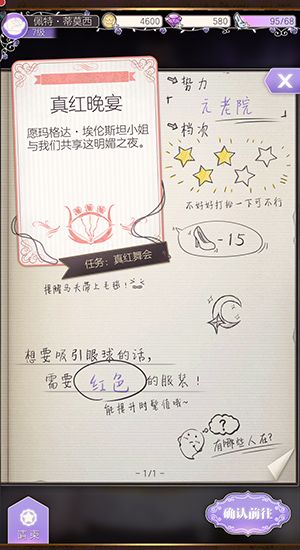 佩特·蒂莫西
4600
580
95/68
7级
真红晚宴
愿玛格达·埃伦斯坦小姐
与我们共享这明媚之夜。
任务:真红舞会
势力
元老院
档次
不好好打扮一下可不行
-15
想要吸引眼球的话,
需要 红色 的服装!
能提升时髦值哦~
?
有哪些人在?
- 1/1 -
请柬
确认前往